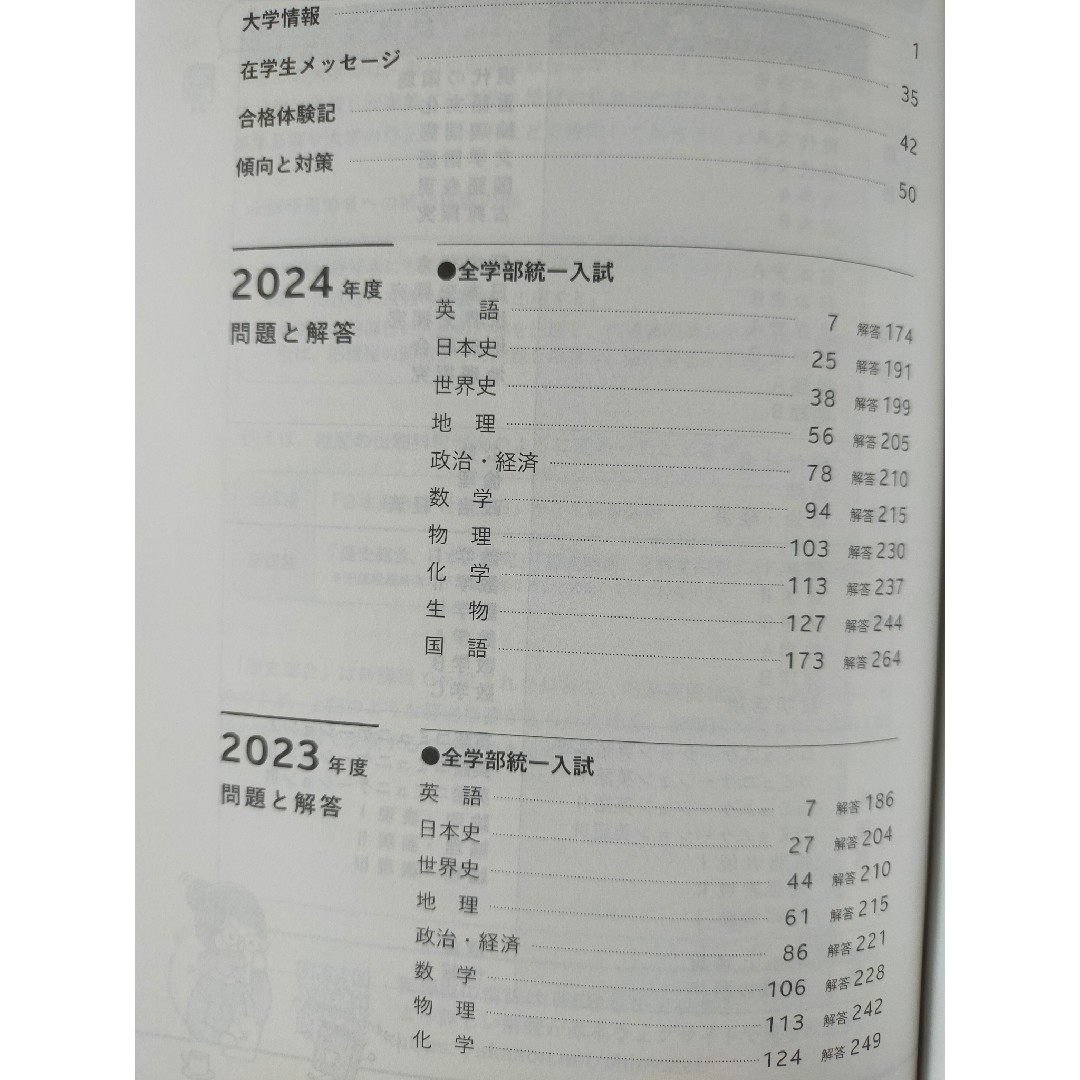 大学情報 1
在学生メッセージ 35
合格体験記 42
傾向と対策 50
2024年度
問題と解答
●全学部統一入試
英 語 7 解答174
日本史 25 解答191
世界史 38 解答199
地 理 56 解答205
政治・経済 78 解答210
数 学 94 解答215
物 理 103 解答230
化 学 113 解答237
生 物 127 解答244
国 語 173 解答264
2023年度
問題と解答
●全学部統一入試
英 語 7 解答186
日本史 27 解答204
世界史 44 解答210
地 理 61 解答215
政治・経済 86 解答221
数 学 106 解答228
物 理 113 解答242
化 学 124 解答249